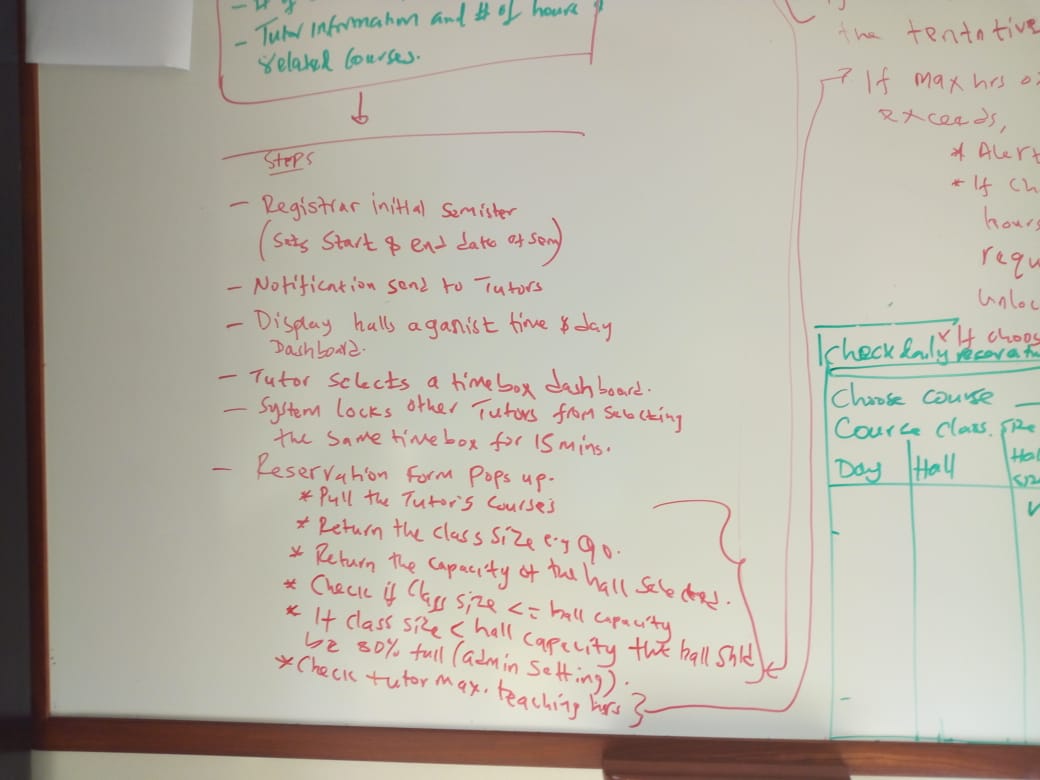 - Tutor Information and # of hours
related Courses.
Steps
- Registrar initial Semister
(Sets Start & end date of sem)
- Notification send to Tutors
- Display halls aganist time & day
Dashboard.
- Tutor selects a timebox dashboard.
- System locks other Tutors from selecting
the same timebox for 15 mins.
- Reservation form Pops up.
* Pull the Tutor's Courses
* Return the class size e.g 90.
* Return the capacity of the hall selected.
* Check if Class size <= hall capacity
* If class size < hall capacity the hall shld
be 80% full (admin setting).
* Check tutor max. teaching hrs }
the tentative
If max hrs
exceeds,
* Alert
* If ch
hours
requ
unloc
* If choos
Check daily
Choose course
Course Class. size
Day Hall